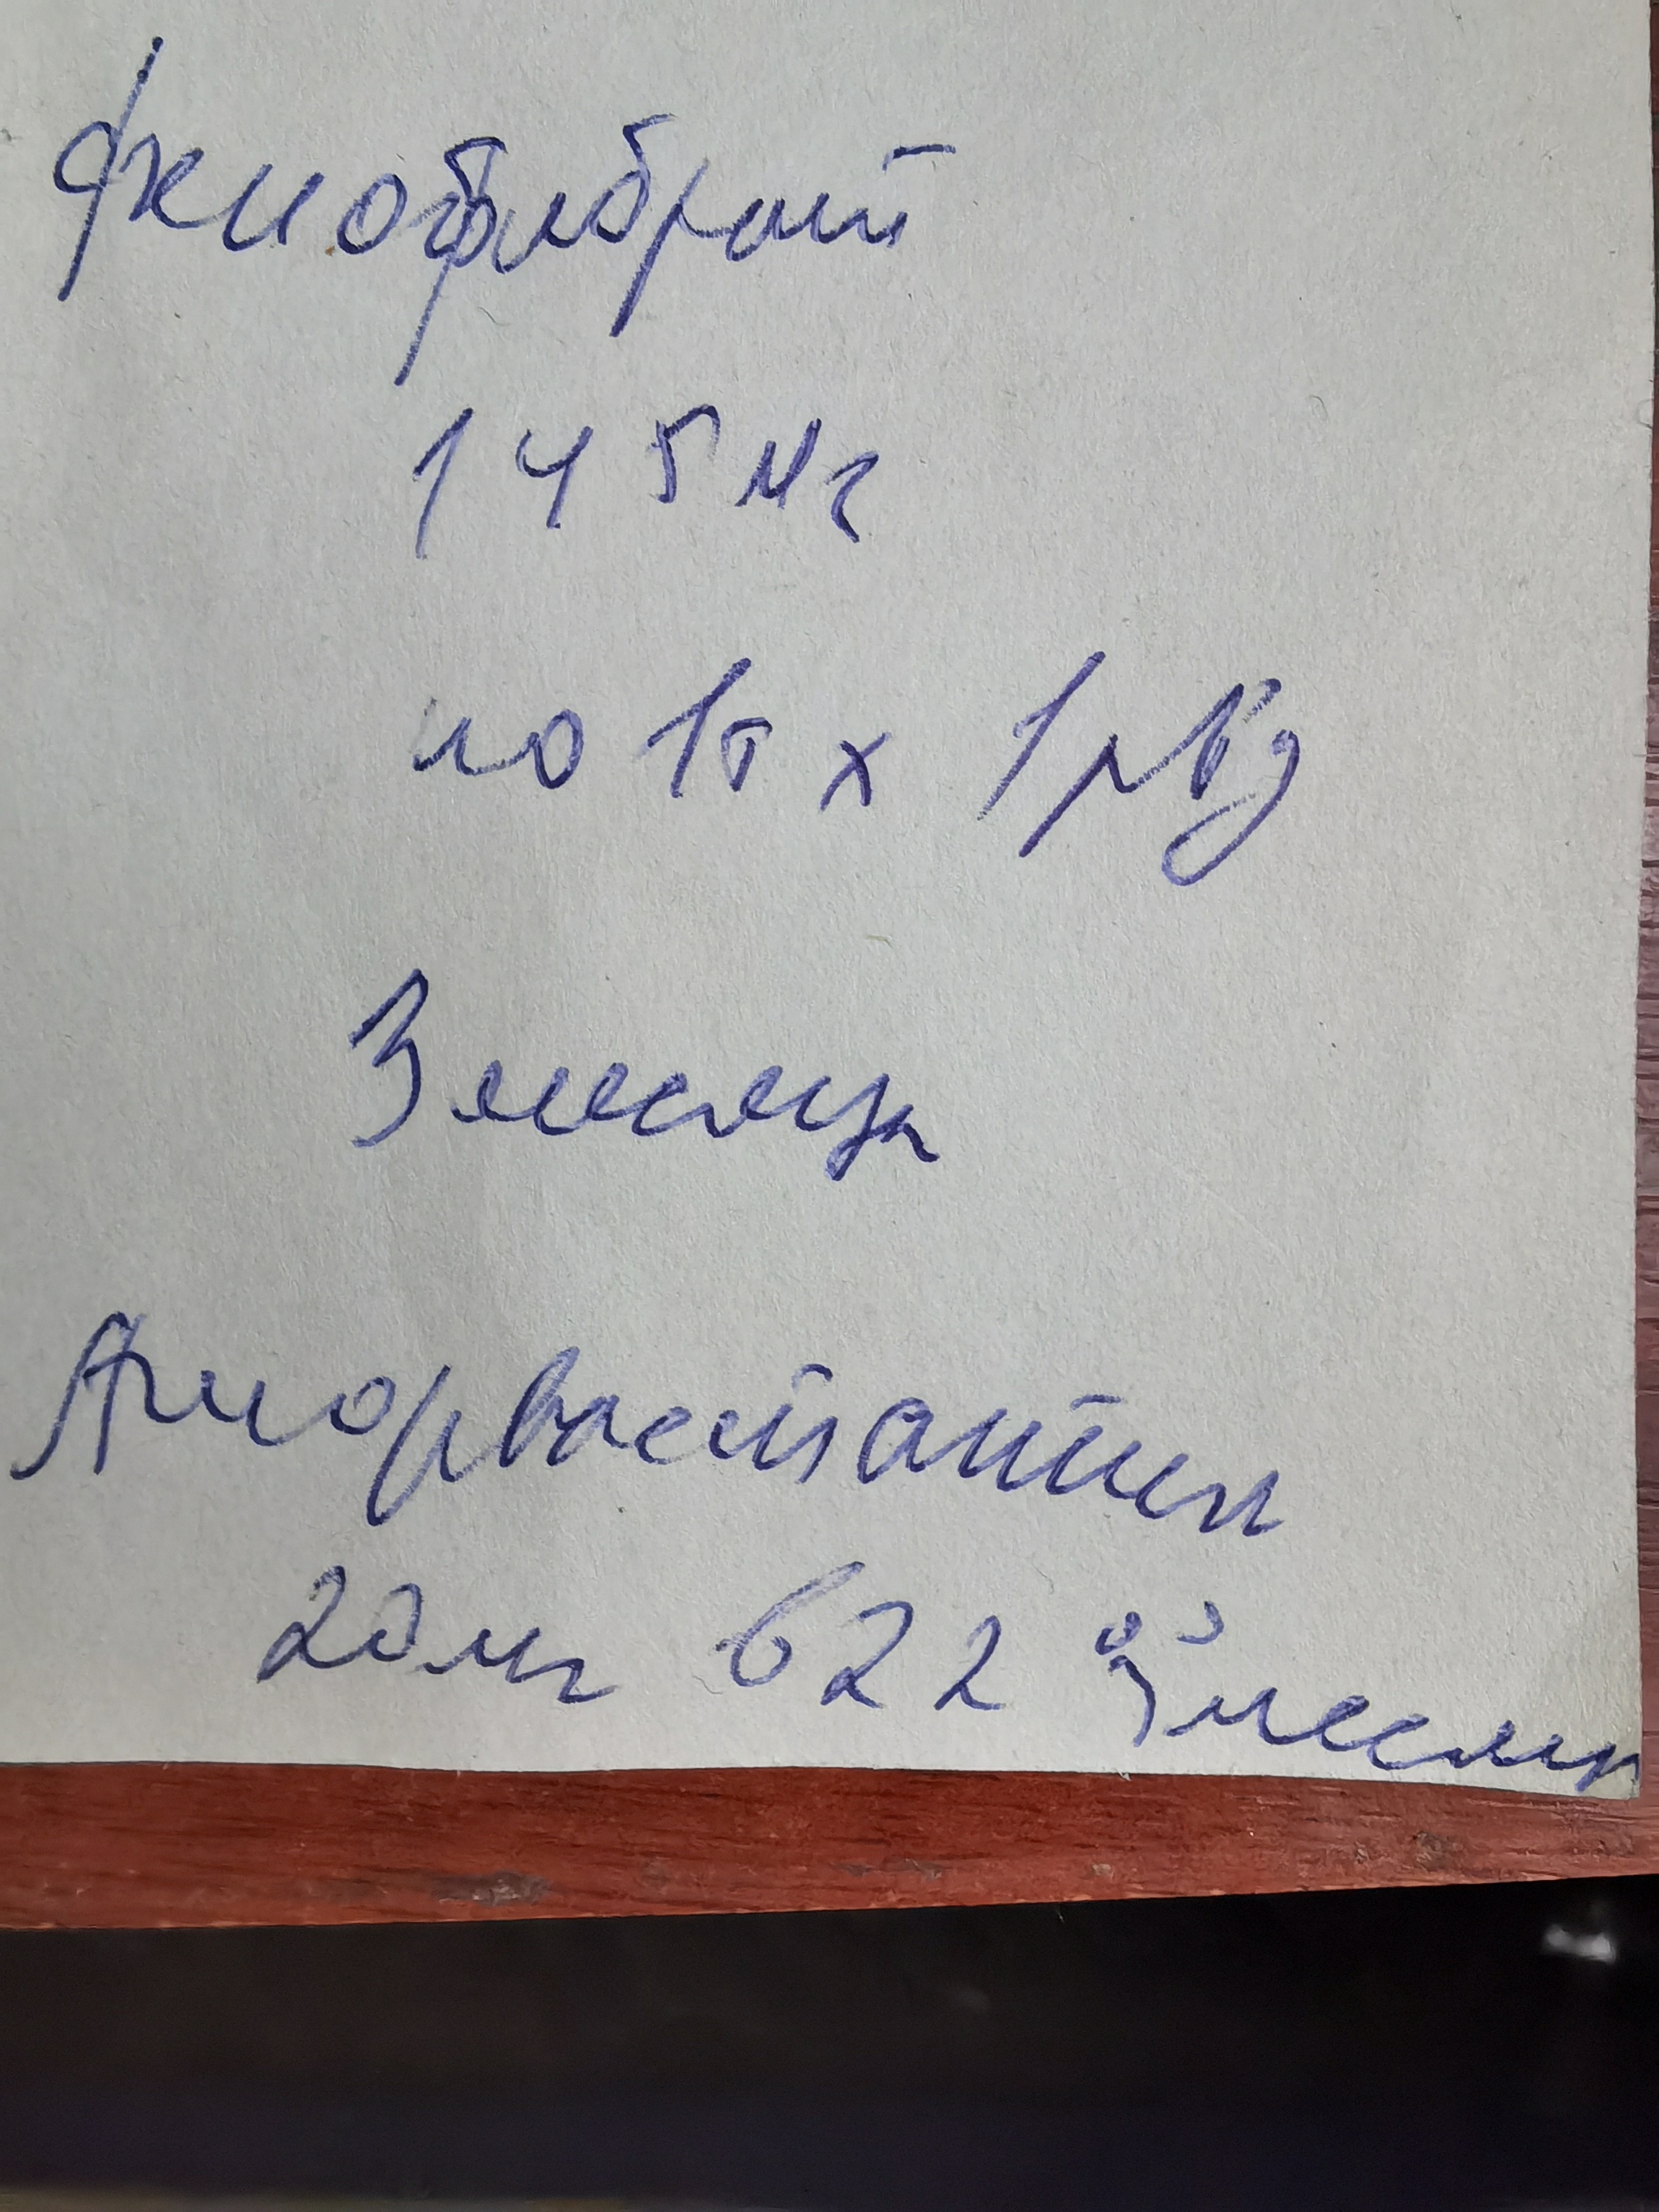 Фенофибрат
145 мг
по 1т х 1р/в д
3 месяца
Аторвастатин
20 мг в 22 00 3 месяца